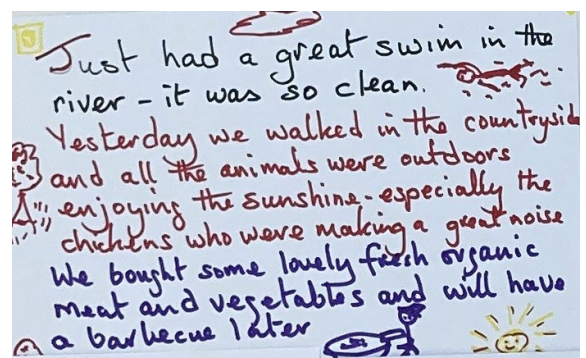 Just had a great swim in the
river - it was so clean.
Yesterday we walked in the countrysid
and all the animals were outdoors
enjoying the sunshine - especially the
chickens who were making a great noise
We bought some lovely fresh organic
meat and vegetables and will have
a barbecue later